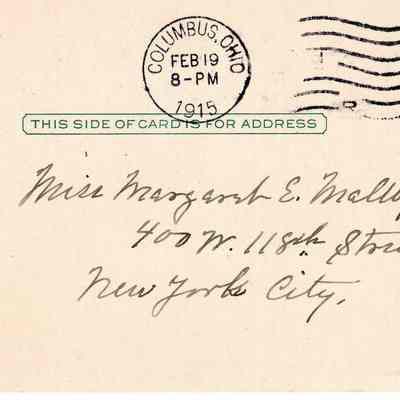 COLUMBUS, OHIO
FEB 19
8-PM
1915
THIS SIDE OF CARD IS FOR ADDRESS
Miss Margaret E. 
400 W. 118th
New York City.